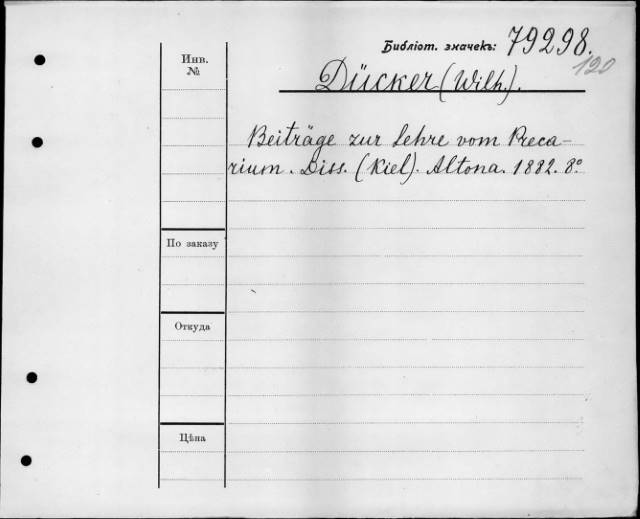 Библіот. значекъ: 79298.
120
Инв.
№
Dücker (Wilh.).
Beiträge zur Lehre vom Preca-
rium. Diss. (Kiel). Altona. 1882. 8º
По заказу
Откуда
Цѣна